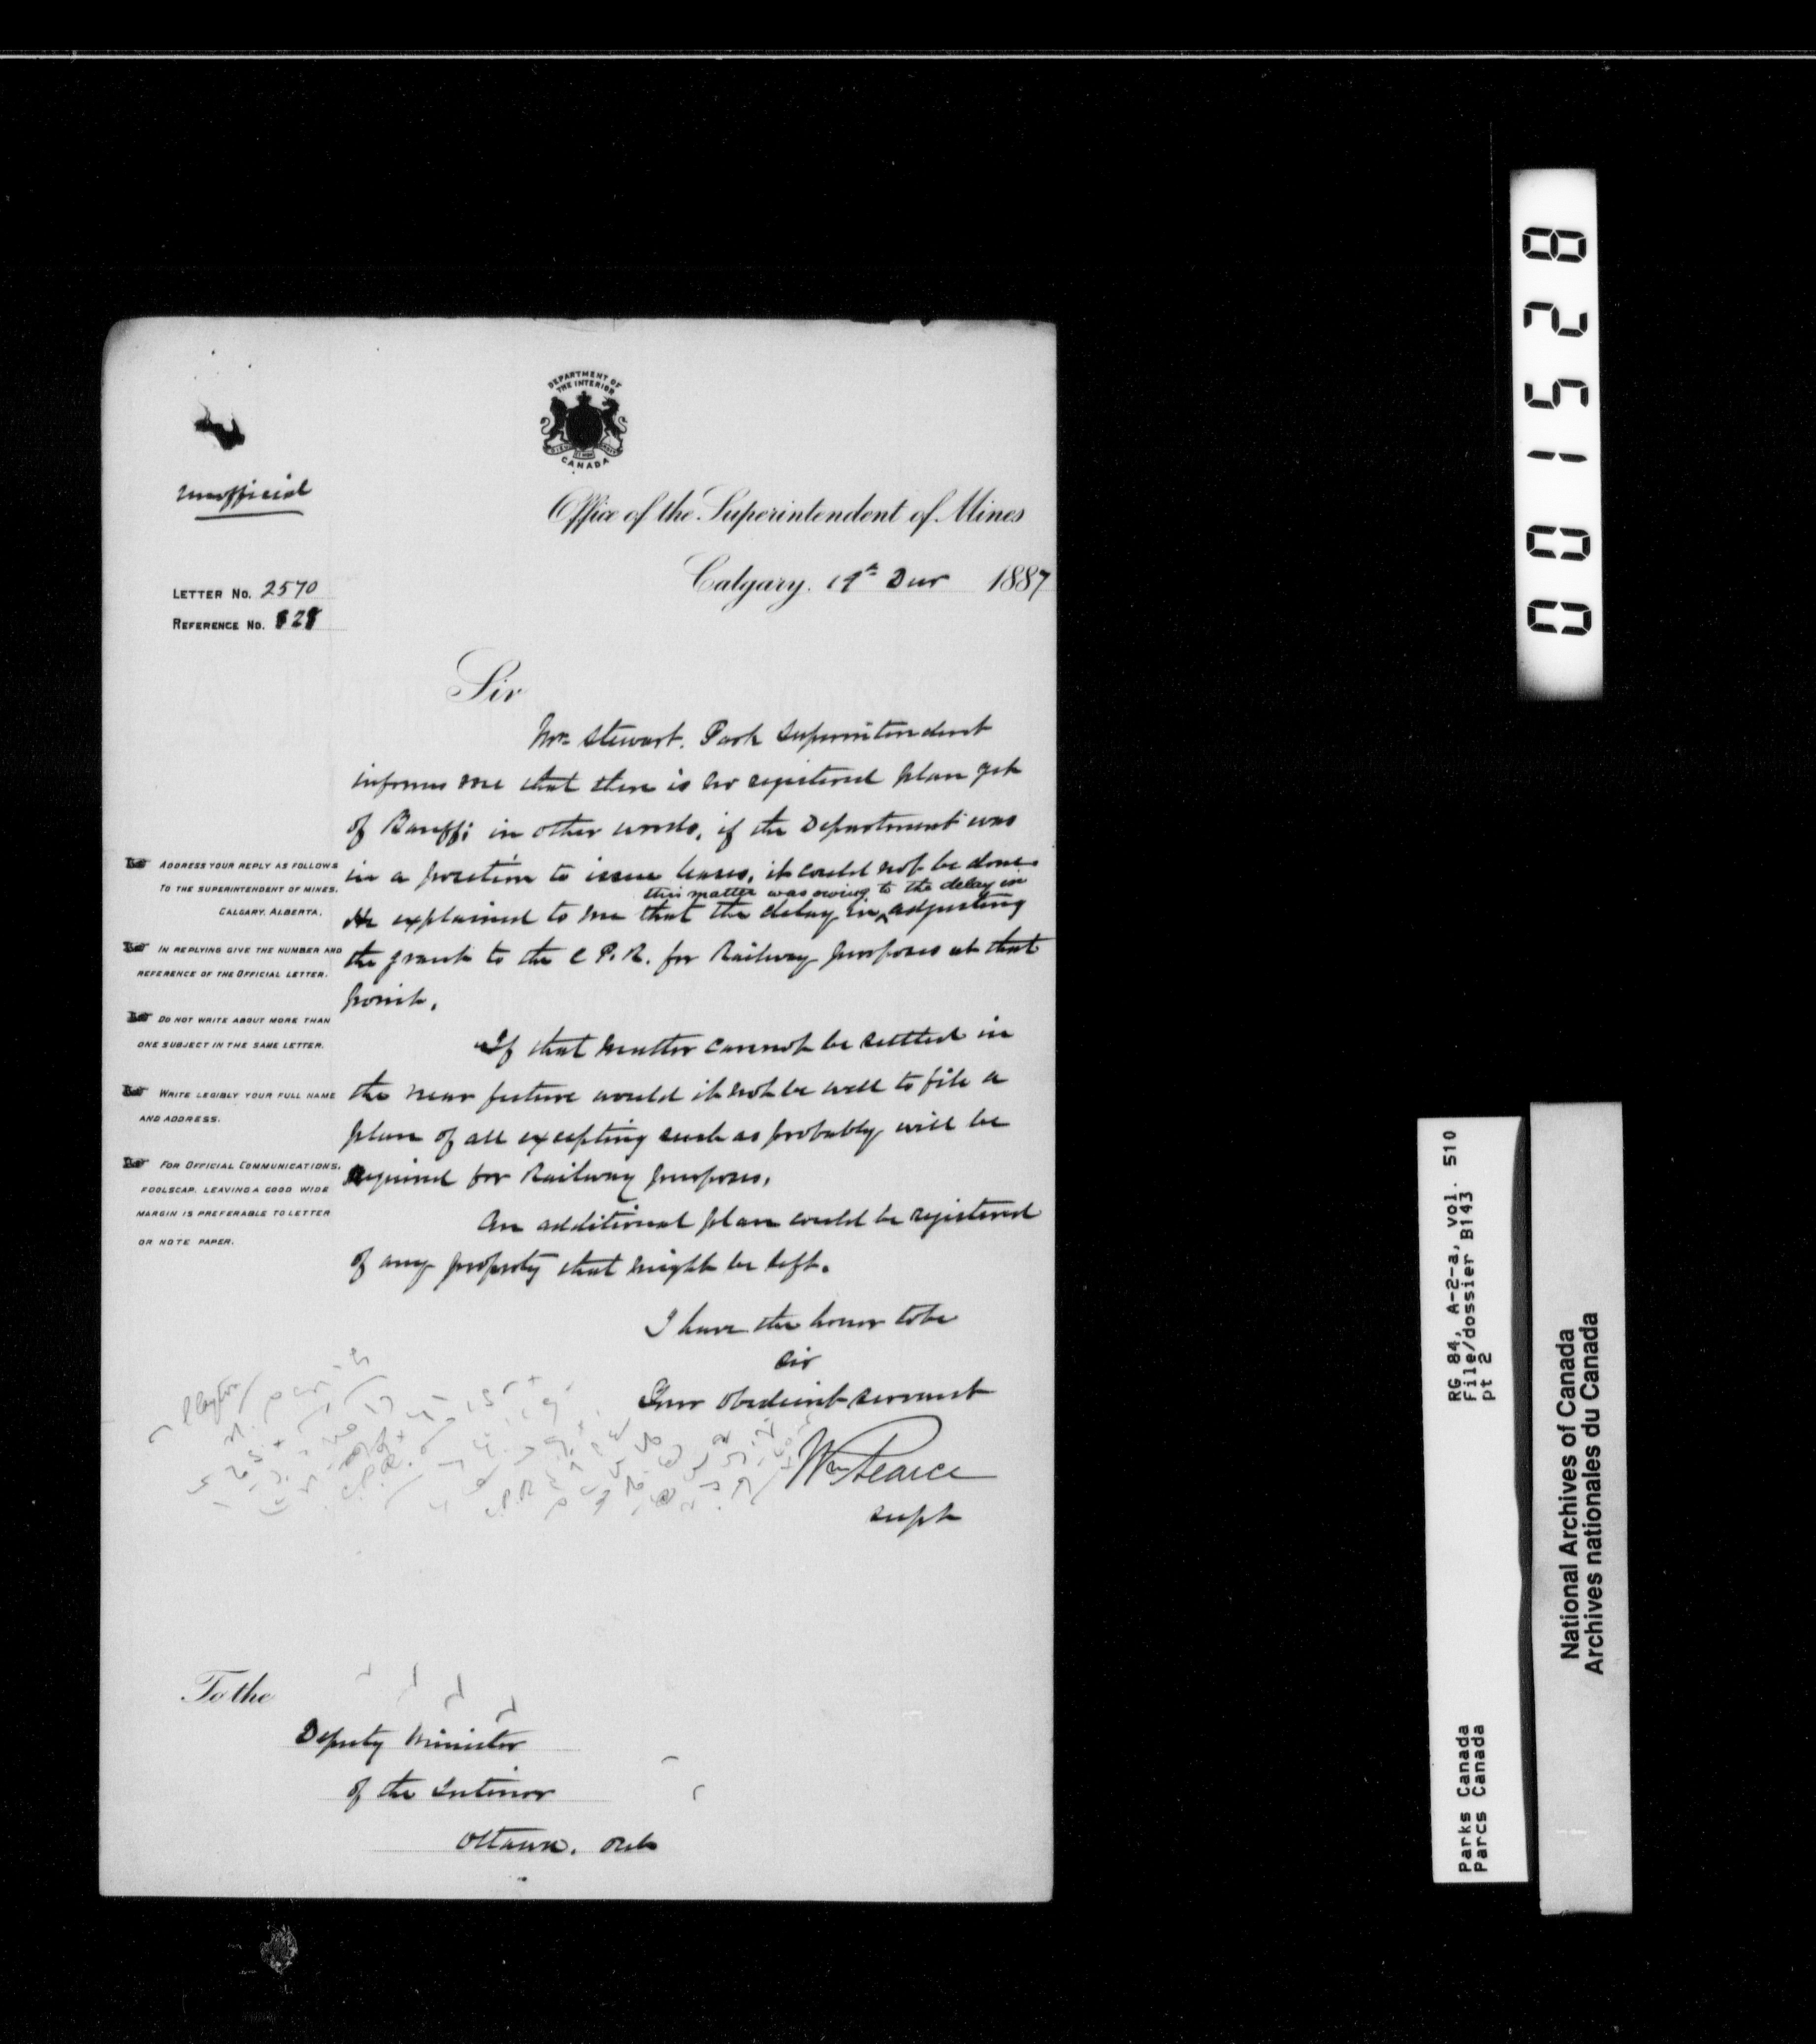 DEPARTMENT OF
THE INTERIOR
CANADA
Unofficial
Office of the Superintendent of Mines
Calgary, 19th Decr 1887
LETTER No. 2570
REFERENCE No. 828
Sir
Mr. Stewart, Park Superintendent
informs me that there is no registered plan yet
of Banff; in other words, if the Department was
in a position to issue leases, it could not be done.
this matter was owing to the delay in
He explained to me that the delay in adjusting
the grant to the C.P.R. for Railway purposes at that
point.
If that matter cannot be settled in
the near future would it not be well to file a
plan of all excepting such as probably will be
required for Railway purposes.
An additional plan could be registered
of any property that might be left.
I have the honor to be
Sir
Your obedient servant
Wm Pearce
Supt
ADDRESS YOUR REPLY AS FOLLOWS
TO THE SUPERINTENDENT OF MINES,
CALGARY, ALBERTA.
IN REPLYING GIVE THE NUMBER AND
REFERENCE OF THE OFFICIAL LETTER.
DO NOT WRITE ABOUT MORE THAN
ONE SUBJECT IN THE SAME LETTER.
WRITE LEGIBLY YOUR FULL NAME
AND ADDRESS.
FOR OFFICIAL COMMUNICATIONS,
FOOLSCAP, LEAVING A GOOD WIDE
MARGIN IS PREFERABLE TO LETTER
OR NOTE PAPER.
To the
Deputy Minister
of the Interior
Ottawa. Ont
001528
RG 84, A-2-a, vol. 510
File/dossier B143
pt 2
Parks Canada
Parcs Canada
National Archives of Canada
Archives nationales du Canada